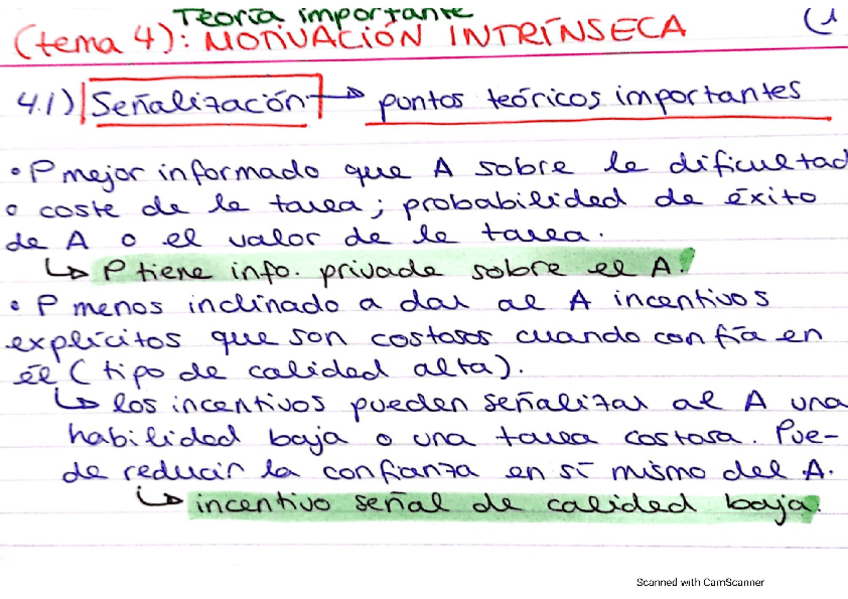 Teoría importante
(tema 4): MOTIVACIÓN INTRÍNSECA
4.1) Señalización → puntos teóricos importantes
• P mejor informado que A sobre le dificultad
o coste de le tarea; probabilidad de éxito
de A o el valor de le tarea.
↳ P tiene info. privade sobre el A.
• P menos inclinado a dar al A incentivos
explícitos que son costosos cuando confía en
él (tipo de calidad alta).
↳ los incentivos pueden señalizar al A una
habilidad baja o una tarea costosa. Pue-
de reducir la confianza en sí mismo del A.
↳ incentivo señal de calidad baja.
Scanned with CamScanner